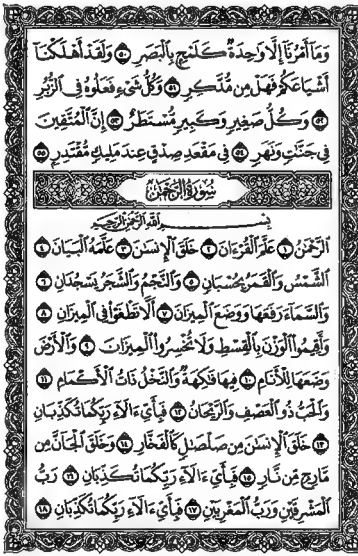 وَمَآ أَمْرُنَآ إِلَّا وَٰحِدَةٌ كَلَمْحٍۭ بِٱلْبَصَرِ ۝٥٠ وَلَقَدْ أَهْلَكْنَآ
أَشْيَاعَكُمْ فَهَلْ مِن مُّدَّكِرٍ ۝٥١ وَكُلُّ شَىْءٍ فَعَلُوهُ فِى ٱلزُّبُرِ
۝٥٢ وَكُلُّ صَغِيرٍ وَكَبِيرٍ مُّسْتَطَرٌ ۝٥٣ إِنَّ ٱلْمُتَّقِينَ
فِى جَنَّٰتٍ وَنَهَرٍ ۝٥٤ فِى مَقْعَدِ صِدْقٍ عِندَ مَلِيكٍ مُّقْتَدِرٍۭ ۝٥٥
سُورَةُ الرَّحْمَٰن
بِسْمِ ٱللَّهِ ٱلرَّحْمَٰنِ ٱلرَّحِيمِ
ٱلرَّحْمَٰنُ ۝١ عَلَّمَ ٱلْقُرْءَانَ ۝٢ خَلَقَ ٱلْإِنسَٰنَ ۝٣ عَلَّمَهُ ٱلْبَيَانَ ۝٤
ٱلشَّمْسُ وَٱلْقَمَرُ بِحُسْبَانٍ ۝٥ وَٱلنَّجْمُ وَٱلشَّجَرُ يَسْجُدَانِ ۝٦
وَٱلسَّمَآءَ رَفَعَهَا وَوَضَعَ ٱلْمِيزَانَ ۝٧ أَلَّا تَطْغَوْا۟ فِى ٱلْمِيزَانِ ۝٨
وَأَقِيمُوا۟ ٱلْوَزْنَ بِٱلْقِسْطِ وَلَا تُخْسِرُوا۟ ٱلْمِيزَانَ ۝٩ وَٱلْأَرْضَ
وَضَعَهَا لِلْأَنَامِ ۝١٠ فِيهَا فَٰكِهَةٌ وَٱلنَّخْلُ ذَاتُ ٱلْأَكْمَامِ ۝١١
وَٱلْحَبُّ ذُو ٱلْعَصْفِ وَٱلرَّيْحَانُ ۝١٢ فَبِأَىِّ ءَالَآءِ رَبِّكُمَا تُكَذِّبَانِ
۝١٣ خَلَقَ ٱلْإِنسَٰنَ مِن صَلْصَٰلٍ كَٱلْفَخَّارِ ۝١٤ وَخَلَقَ ٱلْجَآنَّ مِن
مَّارِجٍ مِّن نَّارٍ ۝١٥ فَبِأَىِّ ءَالَآءِ رَبِّكُمَا تُكَذِّبَانِ ۝١٦ رَبُّ
ٱلْمَشْرِقَيْنِ وَرَبُّ ٱلْمَغْرِبَيْنِ ۝١٧ فَبِأَىِّ ءَالَآءِ رَبِّكُمَا تُكَذِّبَانِ ۝١٨